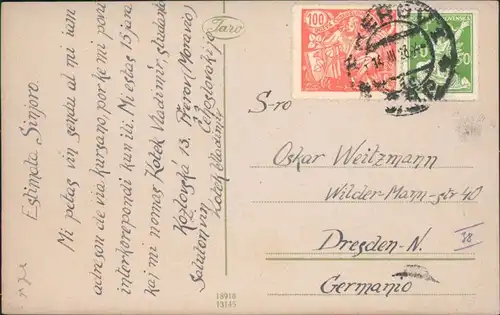 Estimata Sinjoro.
Mi petas vin sendu al mi iam
adreson de via kursano, por ke mi povu
interkorepondi kun ili. Mi estas 15 jara
kaj mi nomas Kotek Vladimír, studanto
Kozlovská 13, Přerov (Moravio)
Čeĥoslovakio
Saluton vin
Kotek Vladimír
Jaro
18918
13145
100
PŘEROV
S-ro
Oskar Weitzmann
Wilder-Mann-str 40
Dresden-N.
Germanio